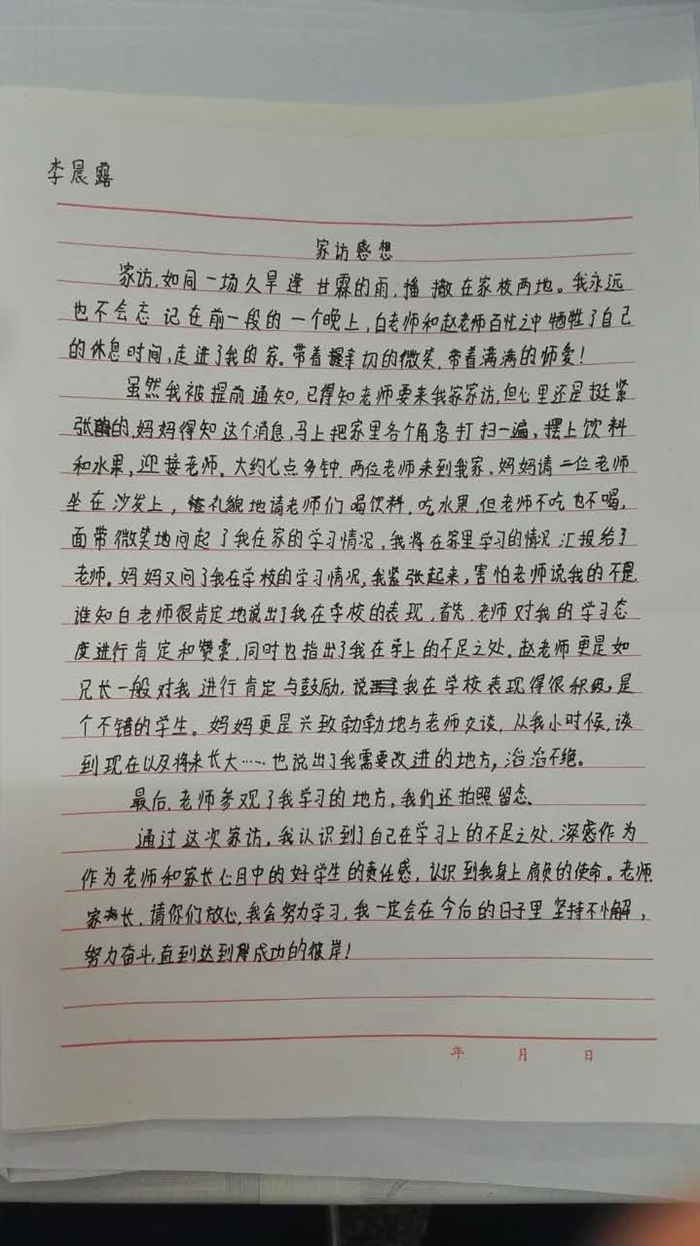 李晨露
家访感想
家访,如同一场久旱逢甘霖的雨,播撒在家校两地。我永远
也不会忘记在前一段的一个晚上,白老师和赵老师百忙之中牺牲了自己
的休息时间,走进了我的家。带着亲切的微笑,带着满满的师爱!
虽然我被提前通知,已得知老师要来我家家访,但心里还是挺紧
张的,妈妈得知这个消息,马上把家里各个角落打扫一遍,摆上饮料
和水果,迎接老师。大约七点多钟,两位老师来到我家。妈妈请二位老师
坐在沙发上,礼貌地请老师们喝饮料,吃水果,但老师不吃也不喝,
面带微笑地问起了我在家的学习情况,我将在家里学习的情况汇报给了
老师。妈妈又问了我在学校的学习情况,我紧张起来,害怕老师说我的不是,
谁知白老师很肯定地说出了我在学校的表现,首先,老师对我的学习态
度进行肯定和赞赏,同时也指出了我在学上的不足之处。赵老师更是如
兄长一般对我进行肯定与鼓励,说我在学校表现得很积极,是
个不错的学生。妈妈更是兴致勃勃地与老师交谈,从我小时候,谈
到现在以及将来长大……也说出了我需要改进的地方,滔滔不绝。
最后,老师参观了我学习的地方,我们还拍照留念。
通过这次家访,我认识到了自己在学习上的不足之处,深感作为
作为老师和家长心目中的好学生的责任感,认识到我身上肩负的使命。老师,
家长,请你们放心,我会努力学习,我一定会在今后的日子里坚持不懈,
努力奋斗,直到达到成功的彼岸!
年 月 日